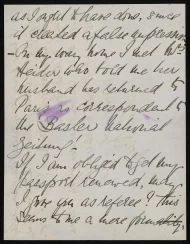 as I ought to have done, since
it created a false impression
- On my way home I met Mrs
Heiler who told me her
husband has returned to
Paris as correspondent to
the Basler National
Zeitung!
If I am obliged to get my
passport renewed, may
I give you as referee? This
seems to me a mere formality